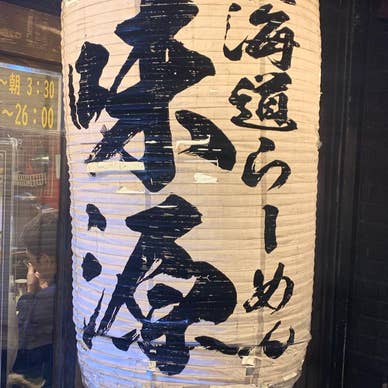 海道らーめん
味源
〜朝3:30
〜26:00